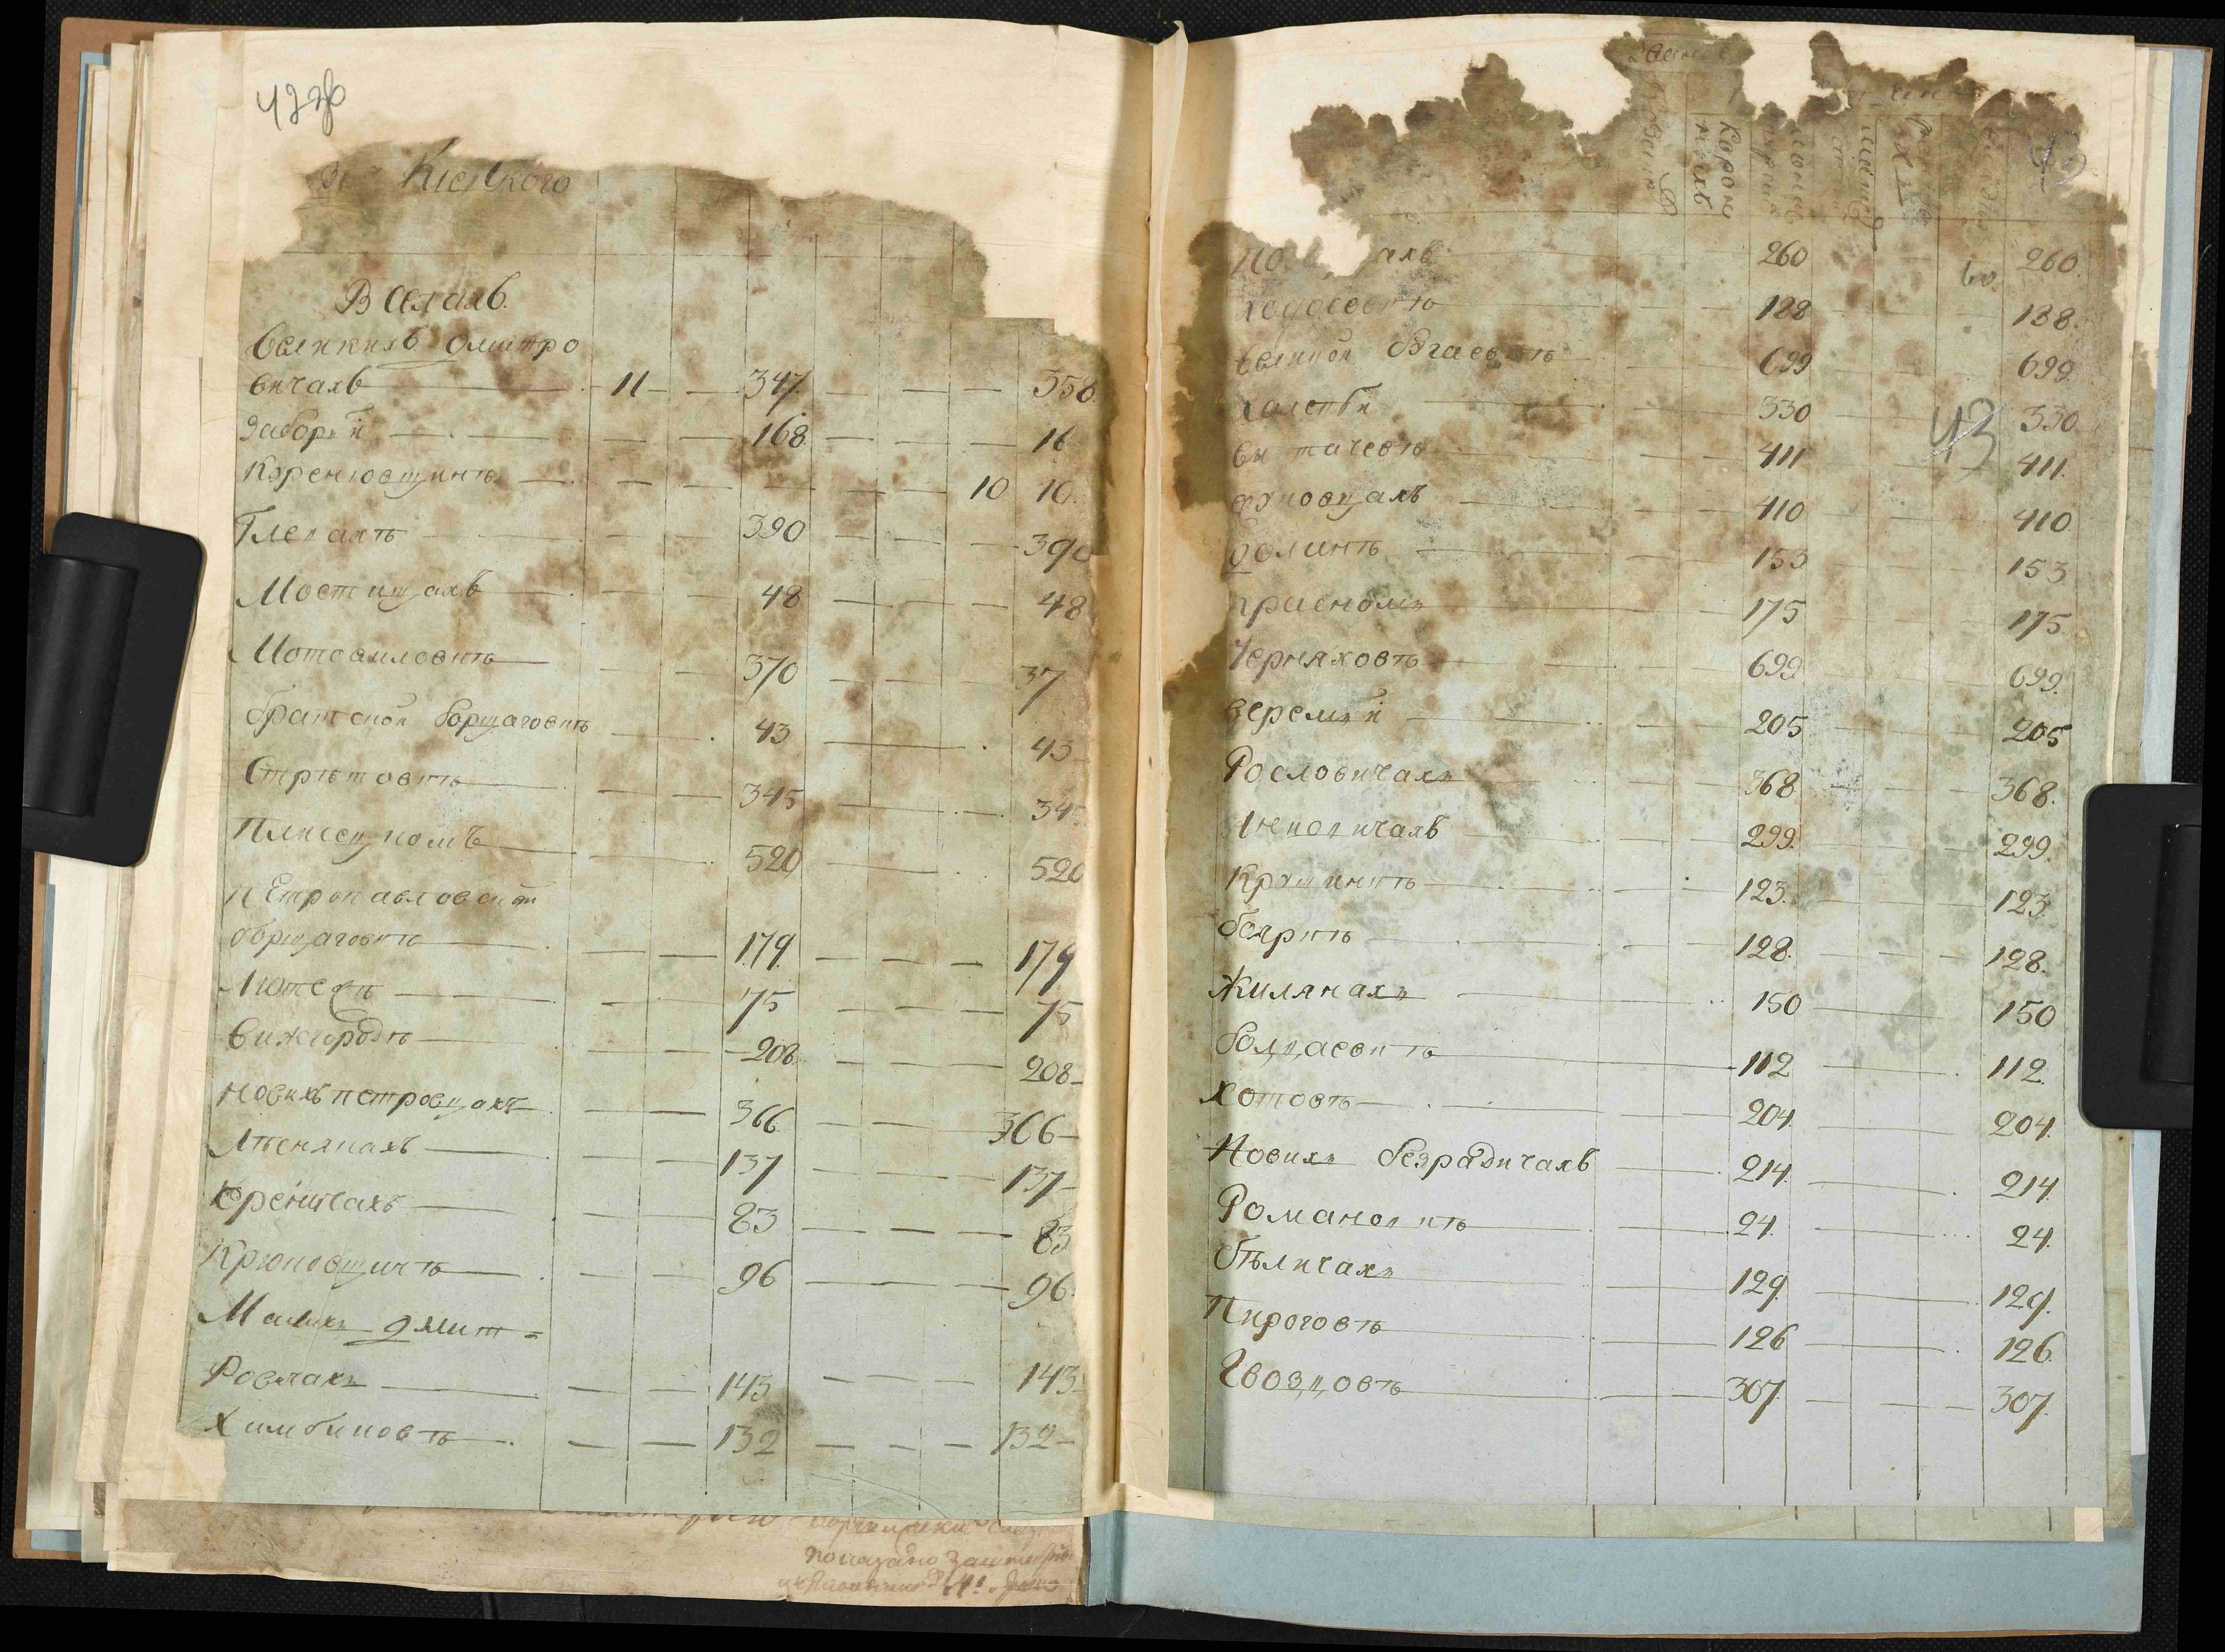 Кіевского
В селахъ.
великихъ дмитро
вичахъ — 11 — — 347. — — — 358.
заборьи — — — 168. — — — 16
Коренювщинѣ — — — — — — 10 10.
Глевахѣ — — — 390 — — — 390
Мостищахъ — — — 48 — — — 48
Мотовиловкѣ — — — 370 — — — 37
братской борщаговкѣ — 43 — 43
Стрѣтовкѣ — — — 345 — — — 34
Плисецкомъ — — 520 — — 520
пЕтропавловской
борщаговкѣ — — — 179. — — — 179
Лютежѣ — — 75 — — — 75
вижгородѣ — — — 208. — — — 208
новихъ петровцахъ — — — 366 — — — 366
Лѣсникахъ — — — 137 — — — 137
креничахъ — — — 83 — — — 83
Крюковщинѣ — — — 96 — — — 96
Малихъ дмит=
Ровичахъ — — — 143 — — — 143
химбиковѣ — — — 132 — — — 132
43
Корон
нихъ
260 260.
ходосевкѣ — 188 — 188.
великой бугаевкѣ — 699 — 699.
халепьи — 330 — 330
43
витачевѣ — 411 — 411.
410 — 410
долинѣ — 153 — 153
красномъ — 175 — 175
Черняховѣ — 699 — 699.
веремьи — 205 — 205
Рославичахъ — 368 — 368.
299. — 299.
Крушинкѣ — 123. — 123.
бояркѣ — 128. — 128.
Жилянахъ — 150 — 150
болдаевкѣ — 112 — 112.
хотовѣ — 204. — 204.
Новихъ безрадичахъ — 214. — 214.
Романовкѣ — 24. — 24.
бѣличахъ — 129. — 129.
Пироговѣ — 126 — 126.
Гвоздовѣ — 307. — 307.
показано